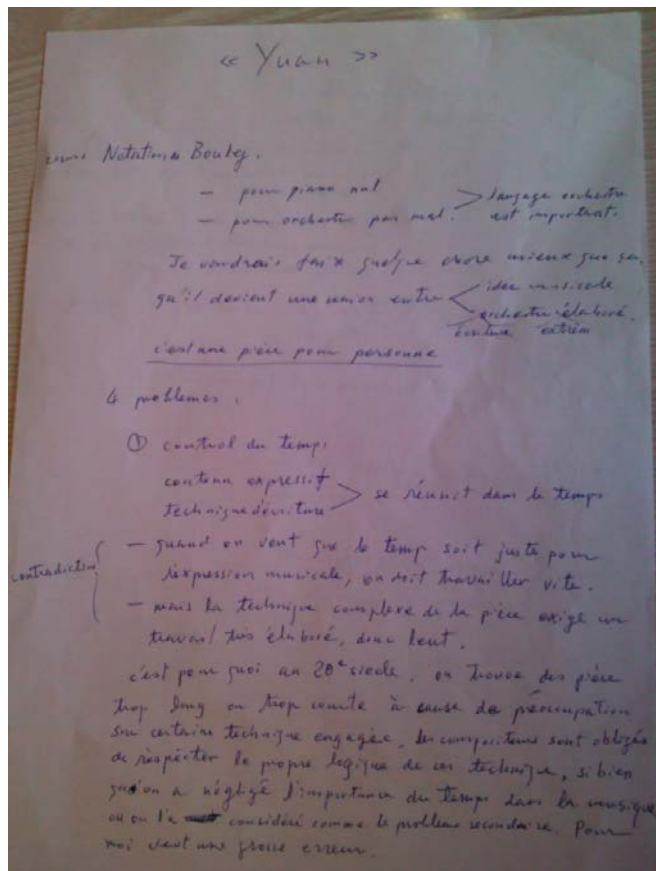 « Yuan »
Notations Boulez.
— pour piano nul
— pour orchestre pas mal. > langage orchestre est important.
Je voudrais faire quelque chose mieux que ça,
qu'il devient une union entre < idée musicale
orchestre élaboré.
écriture extrêm
c'est une pièce pour personne
4 problèmes :
① control du temps
contenu expressif
technique d'écriture > se réunit dans le temps
contradiction { — quand on veut que le temp soit juste pour
l'expression musicale, on doit travailler vite.
— mais la technique complexe de la pièce exige un
travail très élaboré, donc lent.
c'est pour quoi au 20e siècle, on trouve des pièce
trop long ou trop courte à cause de préoccupation
sur certaine technique engagée, les compositeurs sont obligés
de respécter le propre logique de ces technique, si bien
qu'on a négligé l'importance du temps dans la musique
ou on l'a considéré comme le problème secondaire. Pour
moi c'est une grosse erreur.